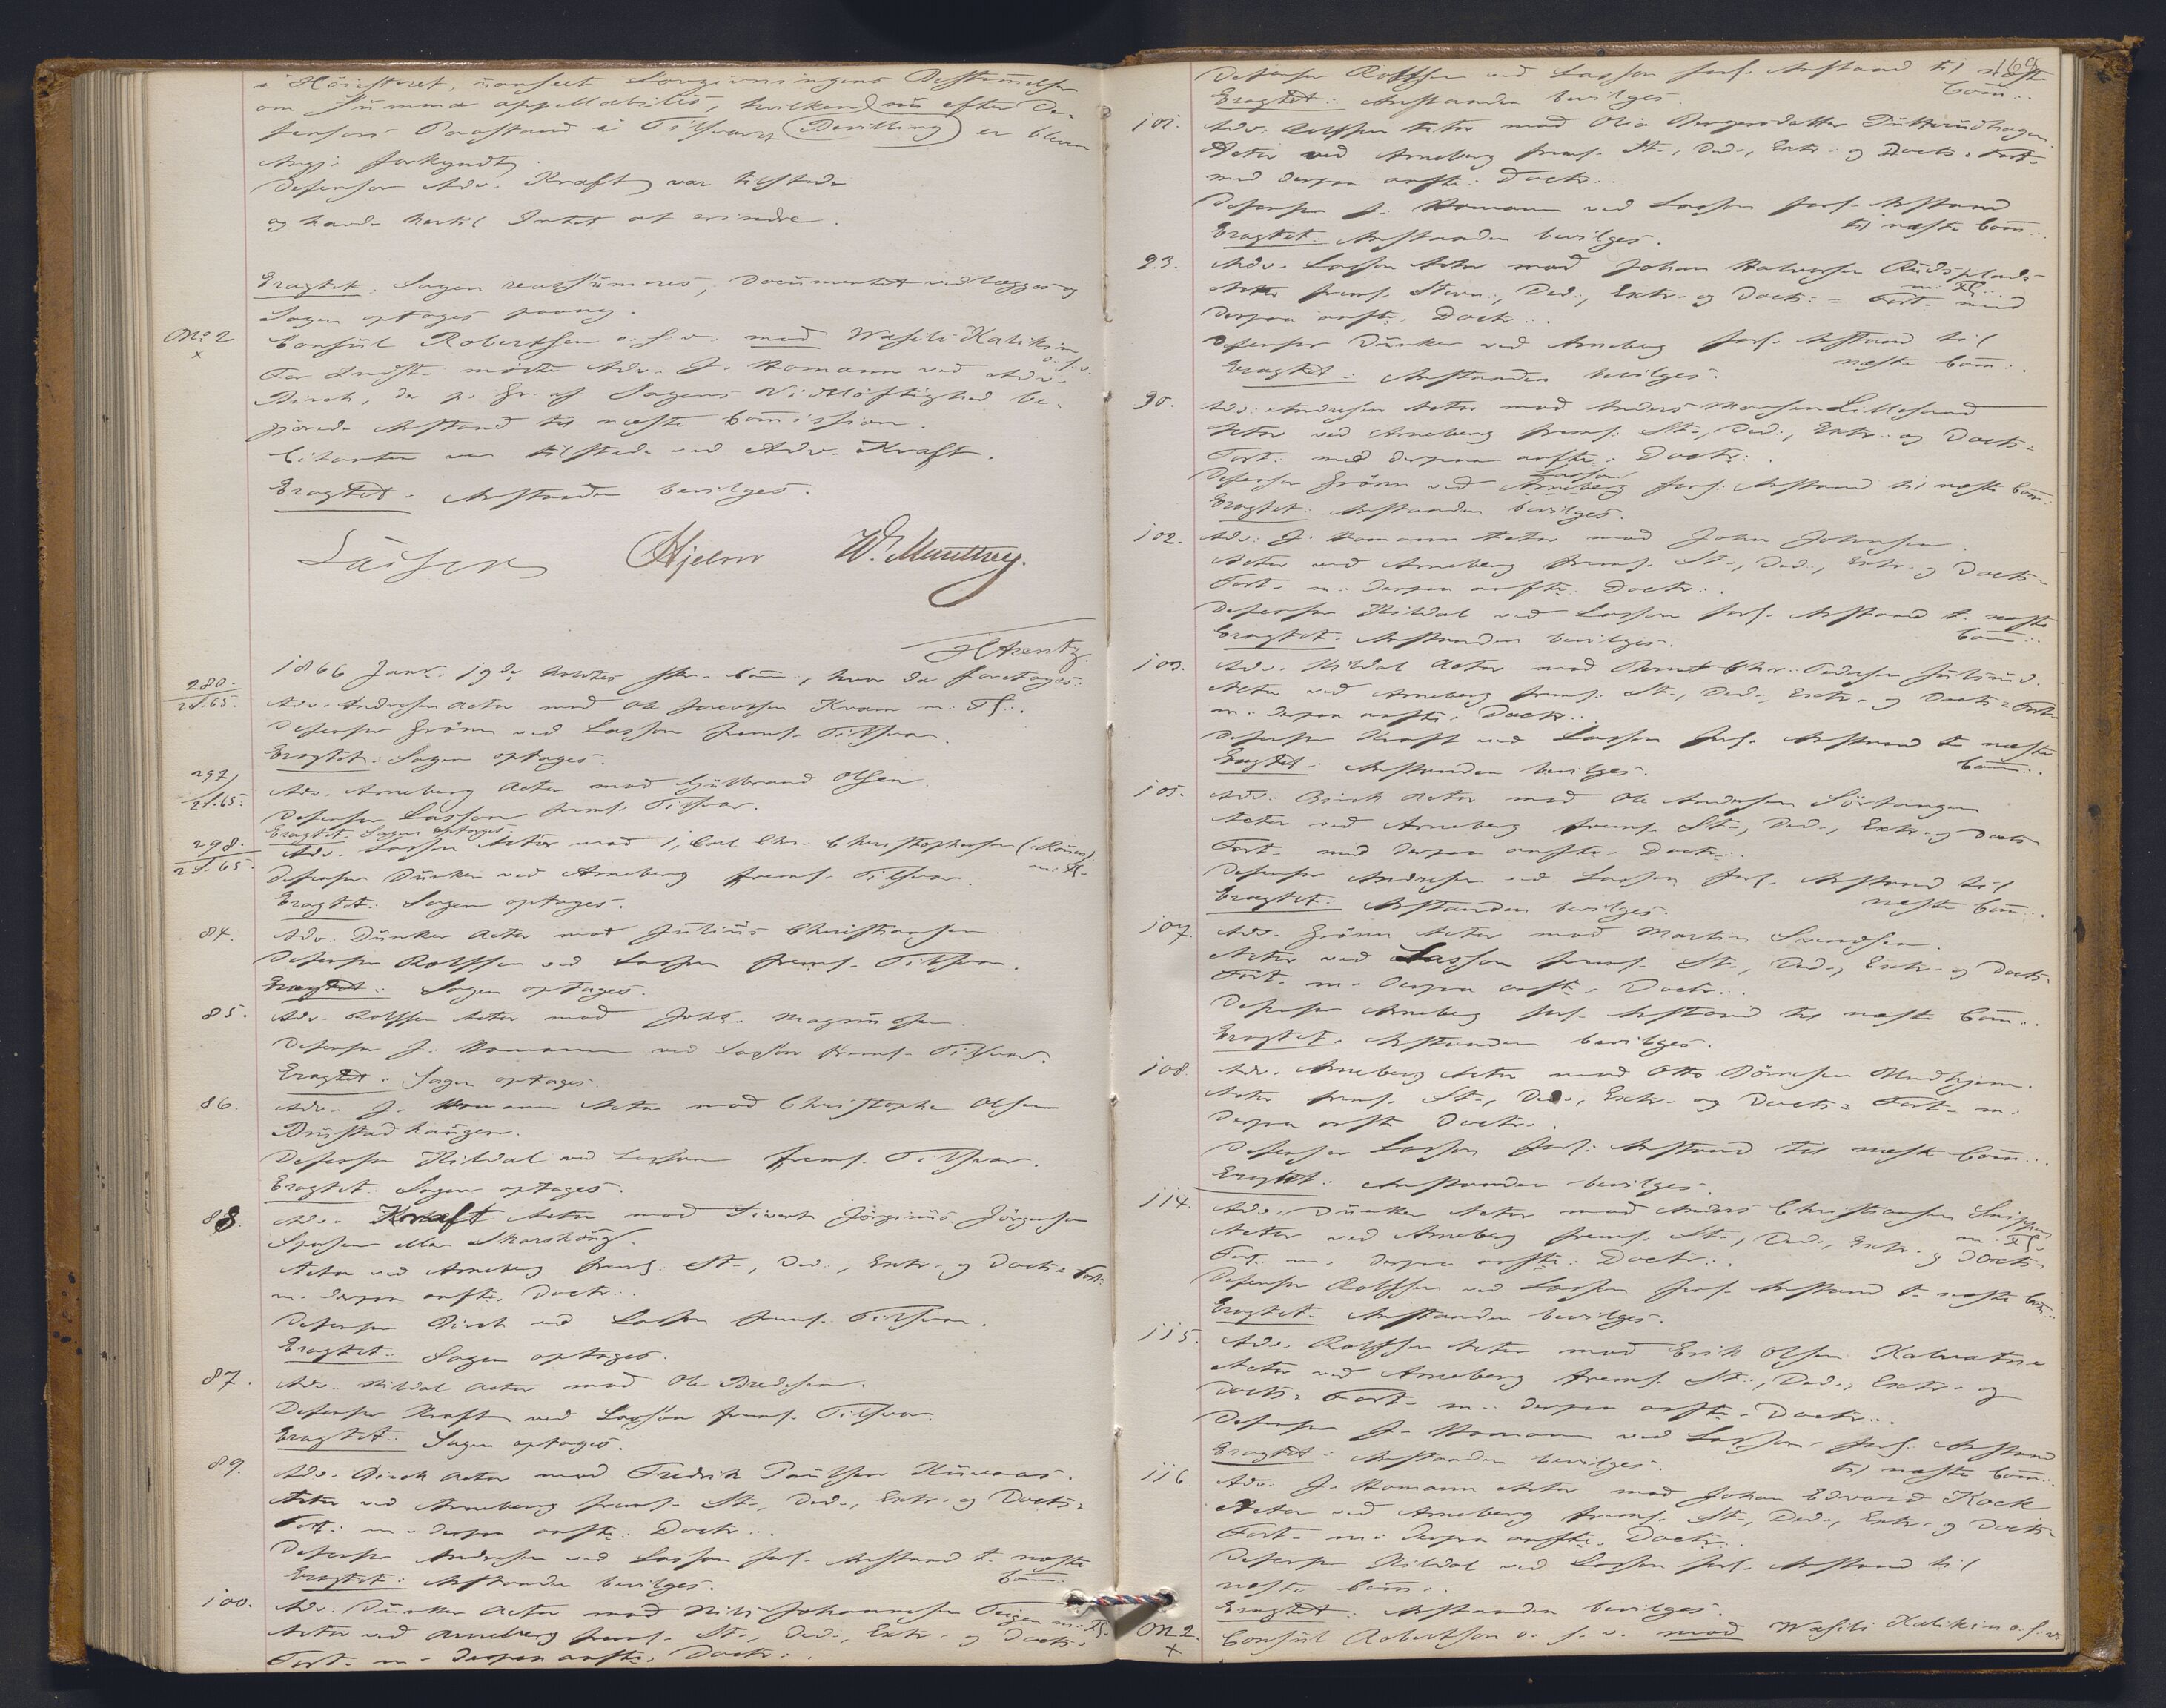 i Höiesteret, uanseet Lovgivningens Bestemmelser
om summa appellabilis, hvilken nu efter De-
fensors Paastand i Tilsvaret (Bevilling) er bleven
forkyndt.
Defensor Adv. Kraft var tilstede
og havde hertil Intet at erindre.
Eragtet: Sagen reassumeres, Documentet vedlægges og
Sagen optages paany.
No 2
x
Consul Robertson o. s. v. mod Wasili Kalikin
o. s. v.
For Indst. mödte Adv. J. Homann ved Adv.
Birch, der p. Gr. af Sagens Vidtlöftighed be-
gjærede Anstand til næste Com̄ission.
Citanten var tilstede ved Adv. Kraft.
Eragtet: Anstanden bevilges.
Lassen Hjelm W. Manthey.
H Arentz.
1866 Janr. 19de holdtes Com̄:, hvor da foretoges:
280.
2S.65.
Adv. Andresen Actor mod Ole Jacobsen Kvam m: Fl:.
Defensor Grönn ved Lasson frems. Tilsvar.
Eragtet: Sagen optages.
297,
2S.65.
Adv. Arneberg Actor mod Gulbrand Olsen.
Defensor Lasson frems. Tilsvar.
Eragtet. Sagen optages.
298.
2S.65.
Adv. Lasson Actor mod 1, Carl Chr. Christophersen
m: Fl.
Defensor Dunker ved Arneberg frems. Tilsvar.
Eragtet: Sagen optages.
84.
Adv. Dunker Actor mod Julius Christiansen.
Defensor Rolfsen ved Lasson frems. Tilsvar.
Eragtet: Sagen optages.
85.
Adv. Rolfsen Actor mod Johs. Magnussen.
Defensor J. Homann ved Lasson frems. Tilsvar.
Eragtet: Sagen optages.
86.
Adv. J. Homann Actor mod Christopher Olsen
Brustadhaugen.
Defensor Hildal ved Lasson frems. Tilsvar.
Eragtet: Sagen optages.
88
Adv. Kraft Actor mod Sivert Jörginus Jörgensen
eller
Actor ved Arneberg frems. St., Ded., Extr. og Docts. Fort.
m. derpaa anfte. Doctr:.
Defensor Birch ved Lasson frems. Tilsvar.
Eragtet: Sagen optages.
87.
Adv. Hildal Actor mod Ole Bredesen.
Defensor Kraft ved Lasson frems. Tilsvar.
Eragtet: Sagen optages.
89.
Adv. Birch Actor mod Fredrik Paulsen
Actor ved Arneberg frems. St., Ded., Extr. og Docts.
Fort: m. derpaa anfte: Doctr:.
Defensor Andresen ved Lasson forl. Anstand t. næste
Com̄:.
Eragtet: Anstanden bevilges.
100.
Adv: Dunker Actor mod Nils Johannesen Teigen m: Fl.
Actor ved Arneberg frems. St., Ded., Extr. og Docts.
Fort. m. derpaa anfte. Doctr:.
Defensor Rolfsen ved Lasson forl. Anstand til næste
Com̄:.
Eragtet: Anstanden bevilges.
101.
Adv. Rolfsen Actor mod Olia
Actor ved Arneberg frems. St., Ded., Extr. og Docts. Fort.
med derpaa anfte: Doctr:.
Defensor J. Homann ved Lasson forl. Anstand
til næste Com̄:.
Eragtet: Anstanden bevilges.
93.
Adv. Lasson Actor mod Johan Halvorsen Rudsplads
m: Fl:.
Actor frems. Stevn:, Ded:, Extr. og Docts: Fort. med
derpaa anfte. Doctr:.
Defensor Dunker ved Arneberg forl. Anstand til
næste Com̄:.
Eragtet: Anstanden bevilges.
90.
Adv: Andresen Actor mod Anders Monsen Lillesand
Actor ved Arneberg frems: St., Ded:, Extr. og Docts.
Fort. med derpaa anfte. Doctr:.
Lasson
Defensor Grönn ved Arneberg forl: Anstand til næste Com̄:.
Eragtet: Anstanden bevilges.
102.
Adv: J. Homann Actor mod John Johnsen.
Actor ved Arneberg frems. St., Ded., Extr. og Docts.
Fort. m: derpaa anfte. Doctr:.
Defensor Hildal ved Lasson forl. Anstand t. næste
Com̄:.
Eragtet: Anstanden bevilges.
103.
Adv. Hildal Actor mod Bernt Chr. Pedersen
Actor ved Arneberg frems: St., Ded:, Extr. og Docts. Fort.
m. derpaa anfte. Doctr:.
Defensor Kraft ved Lasson forl. Anstand t. næste
Com̄:.
Eragtet: Anstanden bevilges.
105.
Adv: Birch Actor mod Ole Andersen Sörtangen
Actor ved Arneberg frems. St., Ded., Extr. og Docts.
Fort. med derpaa anfte. Doctr:.
Defensor Andresen ved Lasson forl. Anstand til
næste Com̄:.
Eragtet: Anstanden bevilges.
107.
Adv. Grönn Actor mod Martin Svendsen.
Actor ved Lasson frems. St., Ded., Extr. og Docts.
Fort. m. derpaa anfte. Doctr:.
Defensor Arneberg forl. Anstand til næste Com̄:.
Eragtet. Anstanden bevilges.
108.
Adv. Arneberg Actor mod Otto
Actor frems. St., Ded., Extr. og Docts. Fort. m:
derpaa anfte Doctr:.
Defensor Lasson forl: Anstand til næste Com̄:.
Eragtet: Anstanden bevilges.
114.
Adv. Dunker Actor mod Anders Christiansen
m: Fl.
Actor ved Arneberg frems. St., Ded., Extr. og Docts.
Fort. m. derpaa anfte: Doctr:.
Defensor Rolfsen ved Lasson forl. Anstand t. næste Com̄:.
Eragtet. Anstanden bevilges.
115.
Adv. Rolfsen Actor mod Erik Olsen Kalvatne
Actor ved Arneberg frems. St:, Ded., Extr. og
Docts. Fort. m: derpaa anfte. Doctr:.
Defensor J. Homann ved Lasson forl: Anstand
til næste Com̄:.
Eragtet: Anstanden bevilges.
116
Adv. J. Homann Actor mod Johan Edvard Kock
Actor ved Arneberg frems. St., Ded., Extr. og Docts.
Fort. m: derpaa anfte. Doctr:.
Defensor Hildal ved Lasson forl. Anstand til
næste Com̄:.
Eragtet: Anstanden bevilges.
No 2.
x
Consul Robertson o. s. v. mod Wasili Kalikin o. s. v.